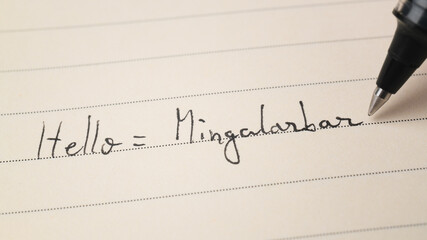 Hello = Mingalarbar